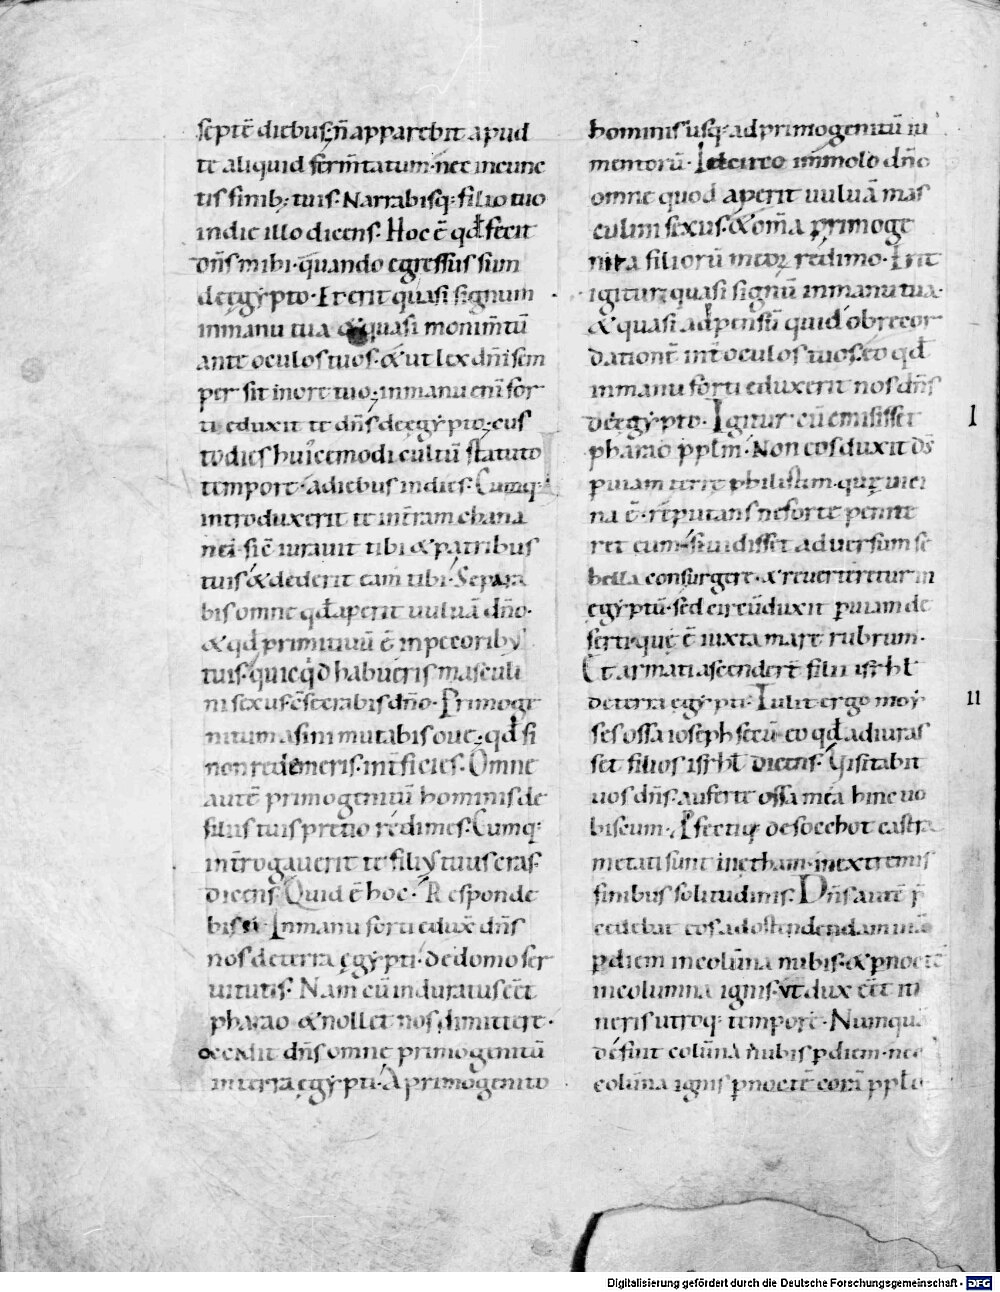 septē diebus; n̄ apparebit apud
te aliquid ferm̄tatum· nec in cunc
tis finib; tuis· Narrabisq; filio tuo
in die illo dicens· Hoc ē qđ fecit
dn̄s mihi· quando egressus sum
de ęgypto· Et erit quasi signum
in manu tua & quasi monim̄tū
ante oculos tuos· & ut lex dn̄i sem
per sit in ore tuo; in manu eni for
ti eduxit te dn̄s de ęgypto; cus
todies huiᶜemodi cultū statuto
tempore· a diebus in dies· Cumq;
introduxerit te in t̄ram chana
nei· sic̄ iurauit tibi & patribus
tuis· & dederit eam tibi· Separa
bis omne qđ aperit uuluā dn̄o·
& qđ primitiuū ē in pecorib;
tuis· quicq̇d habueris masculi
ni sexus c̄secrabis dn̄o· Primoge
nitum asini mutabis oue; qđ si
non redemeris· int̄ficies· Omne
autē primogenitū hominis de
filiis tuis pretio redimes· Cumq;
int̄rogauerit te filiꝰ tuus cras·
dicens· Quid ē hoc· Responde
bis ei· In manu forti edux̄ dn̄s
nos de terra ęgypti· de domo ser
uitutis· Nam cū induratus eēt
pharao & nollet nos dimittere·
occidit dn̄s omne primogenitū
in terra ęgypti· A primogenito
hominis usq; ad primogenitū iu
mentorū· Idcirco immolo dn̄o
omne quod aperit uuluā mas
culini sexus· & om̄a primoge
nita filiorū meoꝝ redimo· Erit
igitur quasi signū in manu tua·
& quasi adpensū quid ob recor
dationē int̄ oculos tuos· eo qđ
in manu forti eduxerit nos dn̄s
de ęgypto· Igitur cū emisisset
pharao pplm̄· Non eos duxit dš
p uiam terre philistim· quę uici
na ē· reputans ne forte penite
ret eum· si uidisset aduersum se
bella consurgere· & reuerteretur in
ęgyptū· sed circūduxit p uiam de
serti· quę ē iuxta mare rubrum·
Et armati ascendert̄ filii isrhl̄
de terra ęgypti· Tulit ergo moy
ses ossa ioseph secū· eo qđ adiuras
set filios isrhl̄ dicens· Uisitabit
uos dn̄s· auferte ossa mea hinc uo
biscum· Pfectiq; de socchot castra
metati sunt in etham· in extremis
finibus solitudinis· Dn̄s autē p̄
cedebat eos ad ostendendam uiā
p diem in colūna nubis· & p noctē
in columna ignis· ut dux eēt iti
neris utroq; tempore· Numquā
defuit colūna nubis p diem· nec
colūna ignis p noctē corā pplo·
I
II
Digitalisierung gefördert durch die Deutsche Forschungsgemeinschaft - DFG